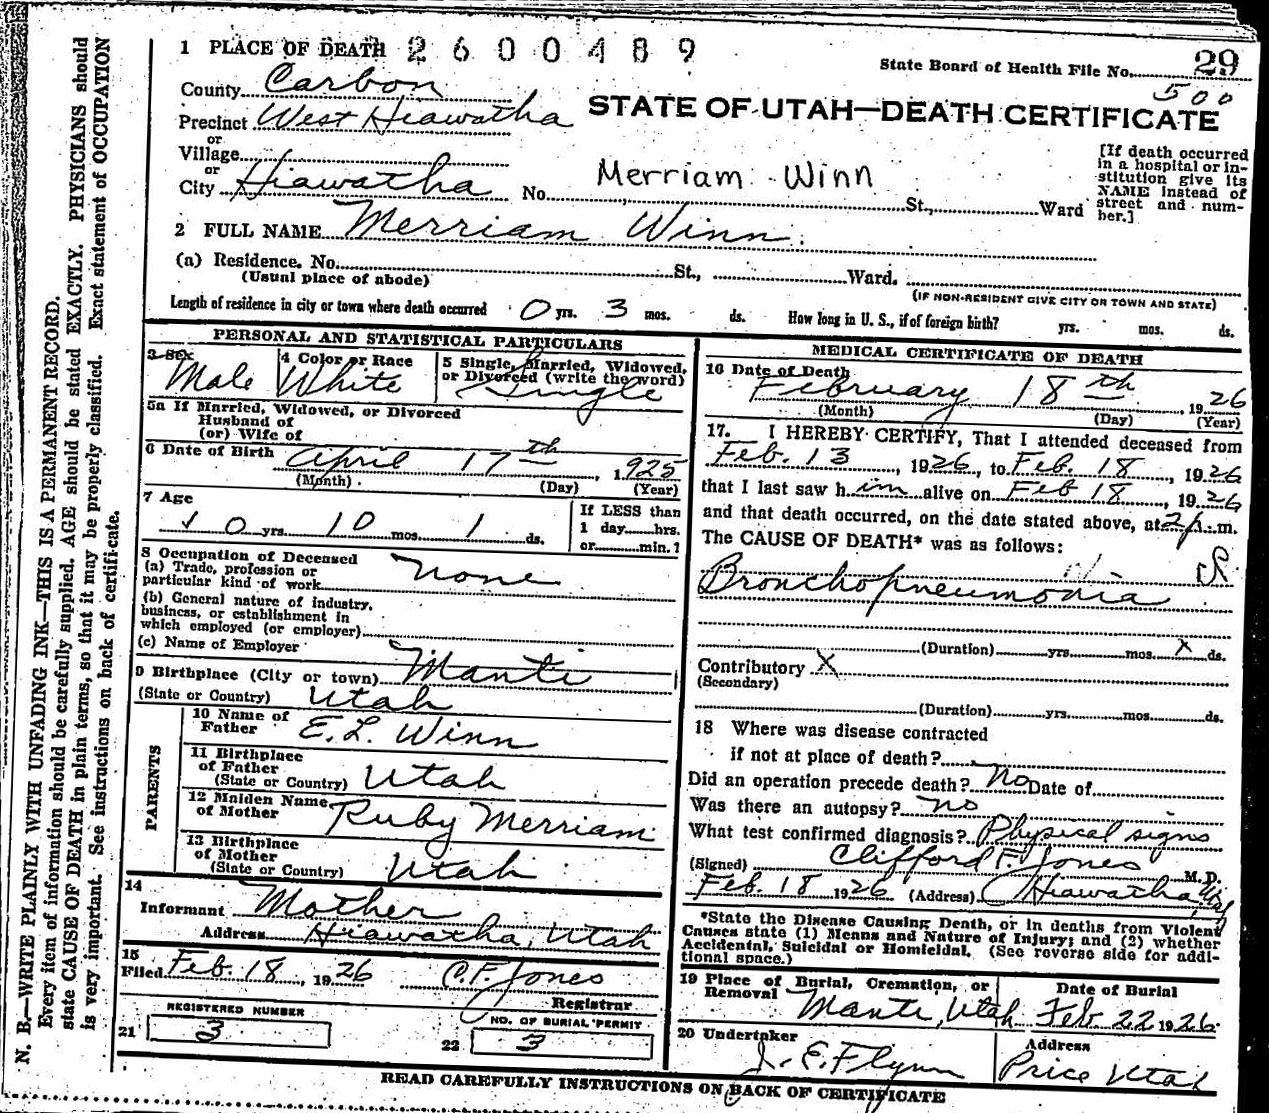 N. B.—WRITE PLAINLY WITH UNFADING INK—THIS IS A PERMANENT RECORD.
Every item of information should be carefully supplied. AGE should be stated EXACTLY. PHYSICIANS should
state CAUSE OF DEATH in plain terms, so that it may be properly classified. Exact statement of OCCUPATION
is very important. See instructions on back of certificate.
1 PLACE OF DEATH 2600489
State Board of Health File No. 29
500
County Carbon
STATE OF UTAH—DEATH CERTIFICATE
Precinct West Hiawatha
or
Village
or
City Hiawatha No. Merriam Winn St., Ward
[If death occurred
in a hospital or in-
stitution give its
NAME instead of
street and num-
ber.]
2 FULL NAME Merriam Winn.
(a) Residence. No. St., Ward.
(Usual place of abode)
(IF NON-RESIDENT GIVE CITY OR TOWN AND STATE)
Length of residence in city or town where death occurred 0 yrs. 3 mos. ds. How long in U. S., if of foreign birth? yrs. mos. ds.
PERSONAL AND STATISTICAL PARTICULARS
3 Sex
Male
4 Color or Race
White
5 Single, Married, Widowed,
or Divorced (write the word)
Single
5a If Married, Widowed, or Divorced
Husband of
(or) Wife of
6 Date of Birth April 17th, 1925
(Month) (Day) (Year)
7 Age
0 yrs. 10 mos. 1 ds.
If LESS than
1 day hrs.
or min.?
8 Occupation of Deceased
(a) Trade, profession or
particular kind of work none
(b) General nature of industry,
business, or establishment in
which employed (or employer)
(c) Name of Employer
9 Birthplace (City or town) Manti
(State or Country) Utah
PARENTS
10 Name of
Father E. L. Winn
11 Birthplace
of Father
(State or Country) Utah
12 Maiden Name
of Mother Ruby Merriam
13 Birthplace
of Mother
(State or Country) Utah
14
Informant Mother
Address Hiawatha, Utah
15
Filed Feb. 18, 1926 C. F. Jones
Registrar
REGISTERED NUMBER
21 3
NO. OF BURIAL PERMIT
22 3
MEDICAL CERTIFICATE OF DEATH
16 Date of Death
February 18th, 1926
(Month) (Day) (Year)
17. I HEREBY CERTIFY, That I attended deceased from
Feb. 13, 1926, to Feb. 18, 1926
that I last saw him alive on Feb 18, 1926
and that death occurred, on the date stated above, at 2 p. m.
The CAUSE OF DEATH* was as follows:
Bronchopneumonia
(Duration) yrs. mos. x ds.
Contributory X
(Secondary)
(Duration) yrs. mos. ds.
18 Where was disease contracted
if not at place of death?
Did an operation precede death? No Date of
Was there an autopsy? no
What test confirmed diagnosis? Physical signs
(Signed) Clifford F. Jones M. D.
Feb. 18 1926 (Address) Hiawatha, Utah
*State the Disease Causing Death, or in deaths from Violent
Causes state (1) Means and Nature of Injury; and (2) whether
Accidental, Suicidal or Homicidal. (See reverse side for addi-
tional space.)
19 Place of Burial, Cremation, or
Removal Manti, Utah
Date of Burial
Feb. 22 1926
20 Undertaker
J. E. Flynn
Address
Price Utah
READ CAREFULLY INSTRUCTIONS ON BACK OF CERTIFICATE